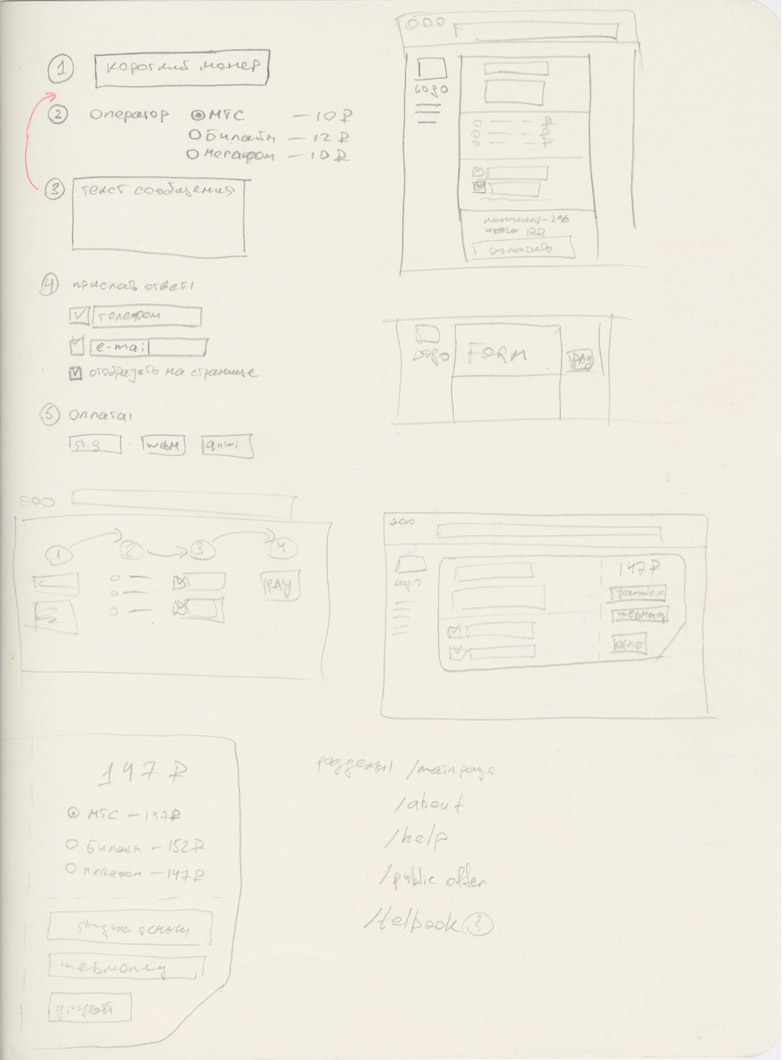 1 короткий номер
2 Оператор МТС — 10 ₽
Билайн — 12 ₽
Мегафон — 10 ₽
3 текст сообщения
4 прислать ответ:
телефон
e-mail
отображать на странице
5 оплата:
webm qiwi
Logo
оплатить
Logo FORM PAY
1 2 3 4
PAY
Logo
147 ₽
webmoney
147 ₽
МТС — 147 ₽
Билайн — 152 ₽
Мегафон — 147 ₽
webmoney
другой
разделы: /mainpage
/about
/help
/public offer
/telbook ?